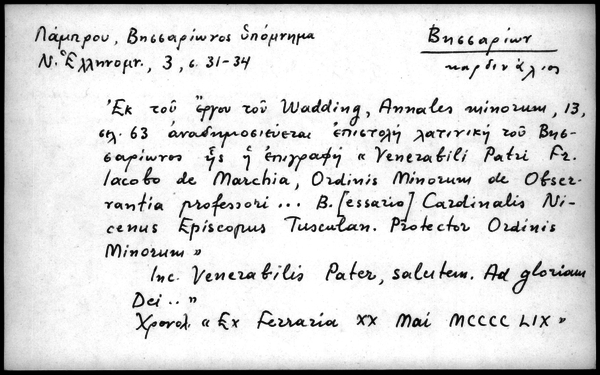 Λάμπρου, Βησσαρίωνος ὑπόμνημα
Ν. Ἑλληνομν., 3, σ. 31-34
Βησσαρίων
καρδινάλιος
Ἐκ τοῦ ἔργου τοῦ Wadding, Annales minorum, 13,
σελ. 63 ἀναδημοσιεύεται ἐπιστολὴ λατινικὴ τοῦ Βησ-
σαρίωνος ἧς ἡ ἐπιγραφὴ « Venerabili Patri Fr.
Iacobo de Marchia, Ordinis Minorum de Obser-
vantia professori ... B. [essario] Cardinalis Ni-
cenus Episcopus Tusculan. Protector Ordinis
Minorum »
Inc. Venerabilis Pater, salutem. Ad gloriam
Dei .. »
Χρονολ. « Ex Ferraria XX Mai MCCCC LIX »